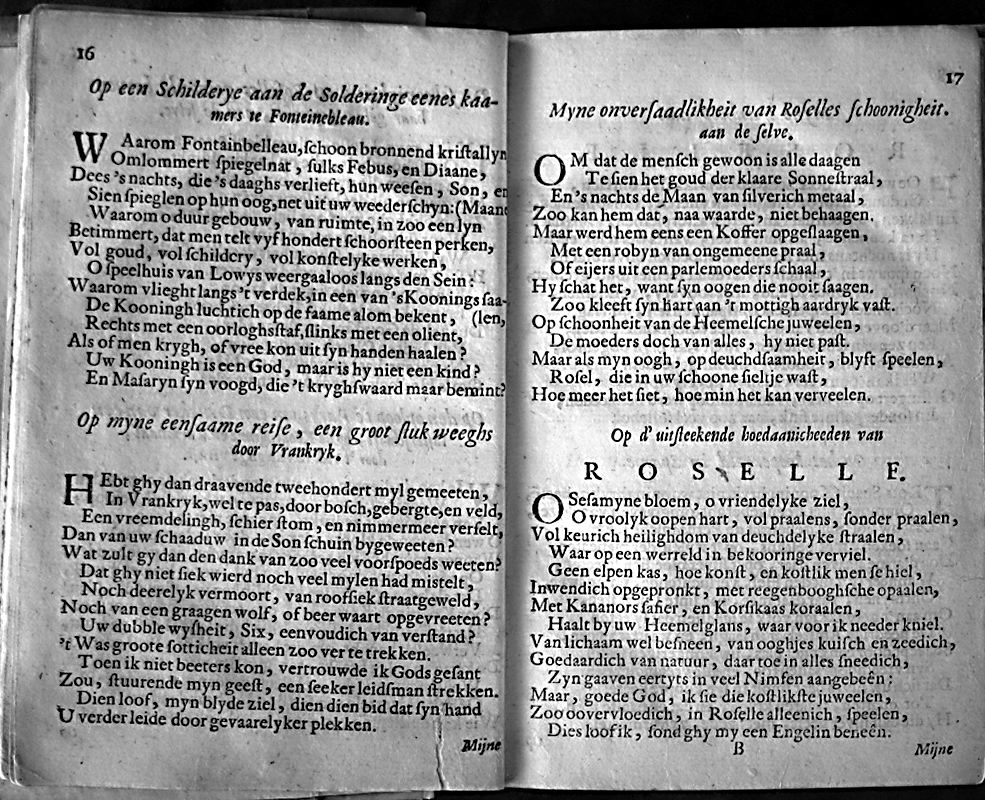 16
Op een Schilderye aan de Solderinge eenes kaa-
mers te Fonteinebleau.
WAarom Fontainbelleau, schoon bronnend kristallyn
Omlommert spiegelnat, sulks Febus, en Diaane,
Dees 's nachts, die 's daaghs verlieft, hun weesen, Son, en
Sien spieglen op hun oog, net uit uw weederschyn: (Maane
Waarom o duur gebouw, van ruimte, in zoo een lyn
Betimmert, dat men telt vyf hondert schoorsteen perken,
Vol goud, vol schildery, vol konstelyke werken,
O speelhuis van Lowys weergaaloos langs den Sein:
Waarom vlieght langs 't verdek, in een van 's Koonings saa-
De Kooningh luchtich op de faame alom bekent, (len,
Rechts met een oorloghsstaf, slinks met een olient,
Als of men krygh, of vree kon uit syn handen haalen?
Uw Kooningh is een God, maar is hy niet een kind?
En Masaryn syn voogd, die 't kryghswaard maar bemint?
Op myne eensaame reise, een groot stuk weeghs
door Vrankryk.
HEbt ghy dan draavende tweehondert myl gemeeten,
In Vrankryk, wel te pas, door bosch, gebergte, en veld,
Een vreemdelingh, schier stom, en nimmermeer verselt,
Dan van uw schaaduw in de Son schuin bygeweeten?
Wat zult gy dan den dank van zoo veel voorspoeds weeten?
Dat ghy niet siek wierd noch veel mylen had mistelt,
Noch deerelyk vermoort, van rooffiek straatgeweld,
Noch van een graagen wolf, of beer waart opgevreeten?
Uw dubble wysheit, Six, eenvoudich van verstand?
't Was groote sotticheit alleen zoo ver te trekken.
Toen ik niet beeters kon, vertrouwde ik Gods gesant
Zou, stuurende myn geest, een seeker leidsman strekken.
Dien loof, myn blyde ziel, dien dien bid dat syn hand
U verder leide door gevaarelyker plekken.
Mijne
17
Myne onversaadlikheit van Roselles schoonigheit.
aan de selve.
OM dat de mensch gewoon is alle daagen
Te sien het goud der klaare Sonnestraal,
En 's nachts de Maan van silverich metaal,
Zoo kan hem dat, naa waarde, niet behaagen.
Maar werd hem eens een Koffer opgeslaagen,
Met een robyn van ongemeene praal,
Of eijers uit een parlemoeders schaal,
Hy schat het, want syn oogen die nooit saagen.
Zoo kleeft syn hart aan 't mottigh aardryk vast.
Op schoonheit van de Heemelsche juweelen,
De moeders doch van alles, hy niet past.
Maar als myn oogh, op deuchdsaamheit, blyft speelen,
Rosel, die in uw schoone sieltje wast,
Hoe meer het siet, hoe min het kan verveelen.
Op d' uitsteekende hoedaanicheeden van
ROSELLE.
O Sesamyne bloem, o vriendelyke ziel,
O vroolyk oopen hart, vol praalens, sonder praalen,
Vol keurich heilighdom van deuchdelyke straalen,
Waar op een werreld in bekooringe verviel.
Geen elpen kas, hoe konst, en kostlik men se hiel,
Inwendich opgepronkt, met reegenbooghsche opaalen,
Met Kananors safier, en Korsikaas koraalen,
Haalt by uw Heemelglans, waar voor ik needer kniel.
Van lichaam wel besneen, van ooghjes kuisch en zeedich,
Goedaardich van natuur, daar toe in alles sneedich,
Zyn gaaven eertyts in veel Nimfen aangebeên:
Maar, goede God, ik sie die kostlikste juweelen,
Zoo oovervloedich, in Roselle alleenich, speelen,
Dies loof ik, sond ghy my een Engelin beneên.
B
Mijne